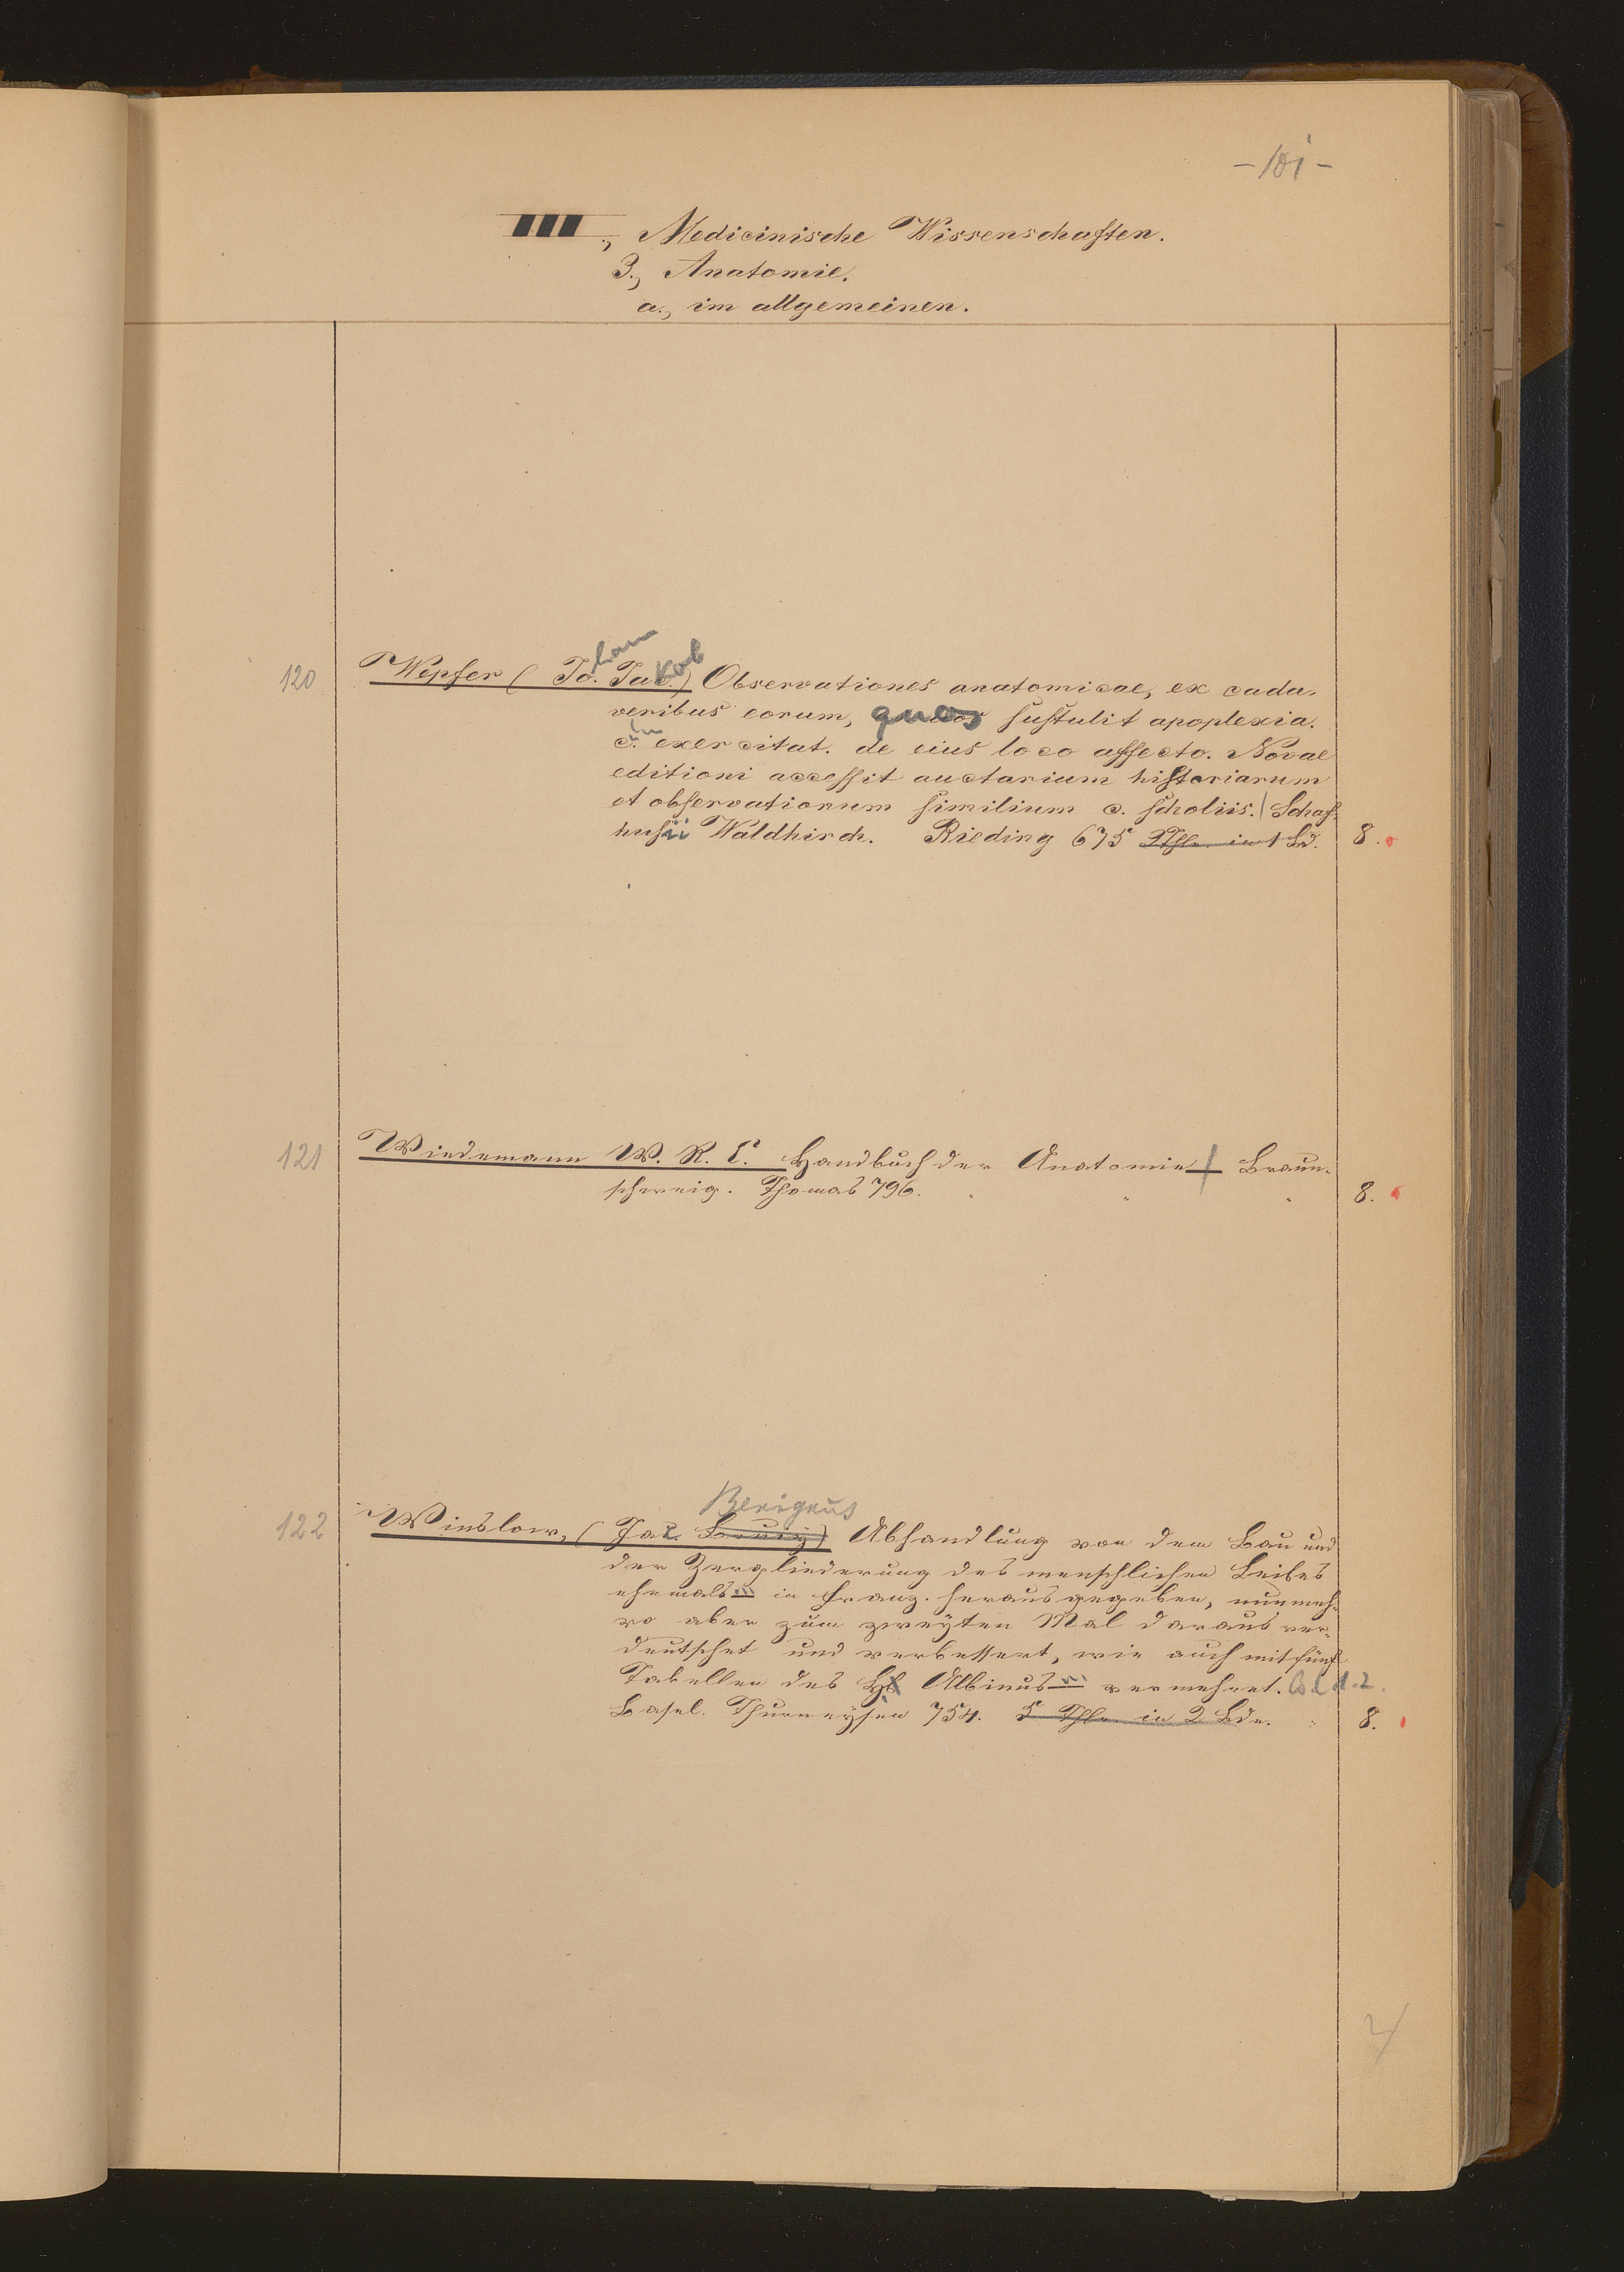 - 101 -
III., Medicinische Wissenschaften.
3., Anatomie.
a., im allgemeinen.
120 Wepfer (Jo. han Jac. kob) Observationes anatomicae, ex cada-
veribus eorum, quos sustulit apoplexia.
c. exercitat. de eius loco affecto. Novae
editioni accessit auctarium historiarum
et observationum similium c. scholiis. | Schaf-
husii Waldkirch. Rieding 675 Thle. in 1 Bd. 8.
121 Wiedemann W. R. C. Handbuch der Anatomie | Braun-
schweig. Thomas 796. 8.
Benignus
122 Winslow, (Jac. Benig) Abhandlung von dem Bau und
der Zergliederung des menschlichen Leibes
ehemals ... in Franz. herausgegeben, nunmeh-
ro aber zum zweyten Mal daraus ver-
deutschet und verbessert, wie auch mit fünf
Tabellen des H. Albinus ... vermehret. Bd 1.2.
Basel. Thurneysen 754. 5 Thle. in 2 Bde. 8.